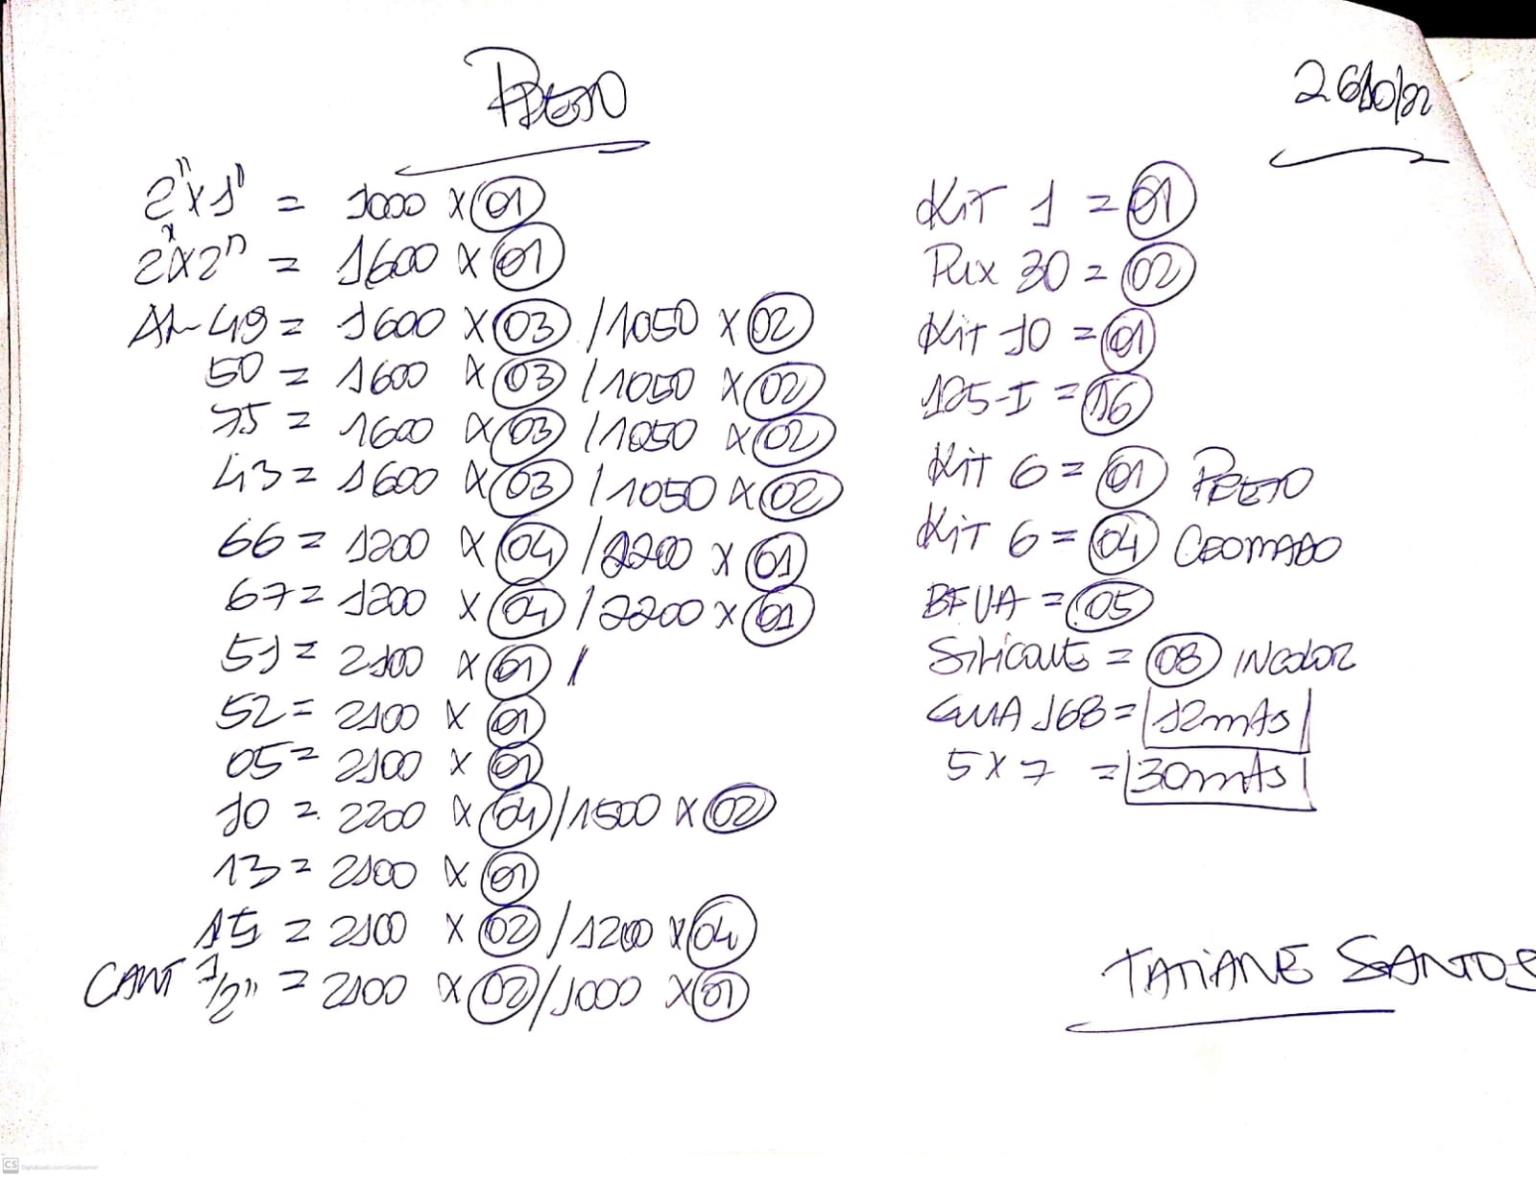 PRETO
26/10/22
2"x1" = 1000 x 01
2"x2" = 1600 x 01
AL-49 = 1600 x 03 / 1050 x 02
50 = 1600 x 03 / 1050 x 02
75 = 1600 x 03 / 1050 x 02
43 = 1600 x 03 / 1050 x 02
66 = 1200 x 04 / 2200 x 01
67 = 1200 x 04 / 2200 x 01
51 = 2100 x 01 /
52 = 2100 x 01
05 = 2100 x 01
10 = 2200 x 04 / 1500 x 02
13 = 2100 x 01
15 = 2100 x 02 / 1200 x 04
CANT 1/2" = 2100 x 02 / 1000 x 01
Kit 1 = 01
Pux 30 = 02
Kit 10 = 01
125-I = 16
Kit 6 = 01 PRETO
Kit 6 = 04 CROMADO
BFUA = 05
Silicone = 08 INCOLOR
GUIA 168 = 12mts
5 x 7 = 30mts
TATIANE SANTOS
CS Digitalizado com CamScanner